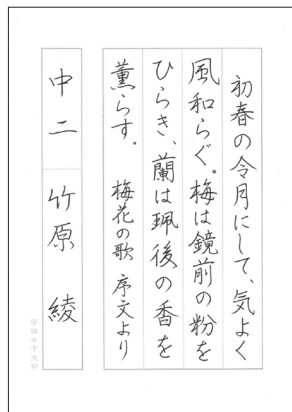 初春の令月にして、気よく
風和らぐ。梅は鏡前の粉を
ひらき、蘭は珮後の香を
薫らす。 梅花の歌 序文より
中二 竹原 綾